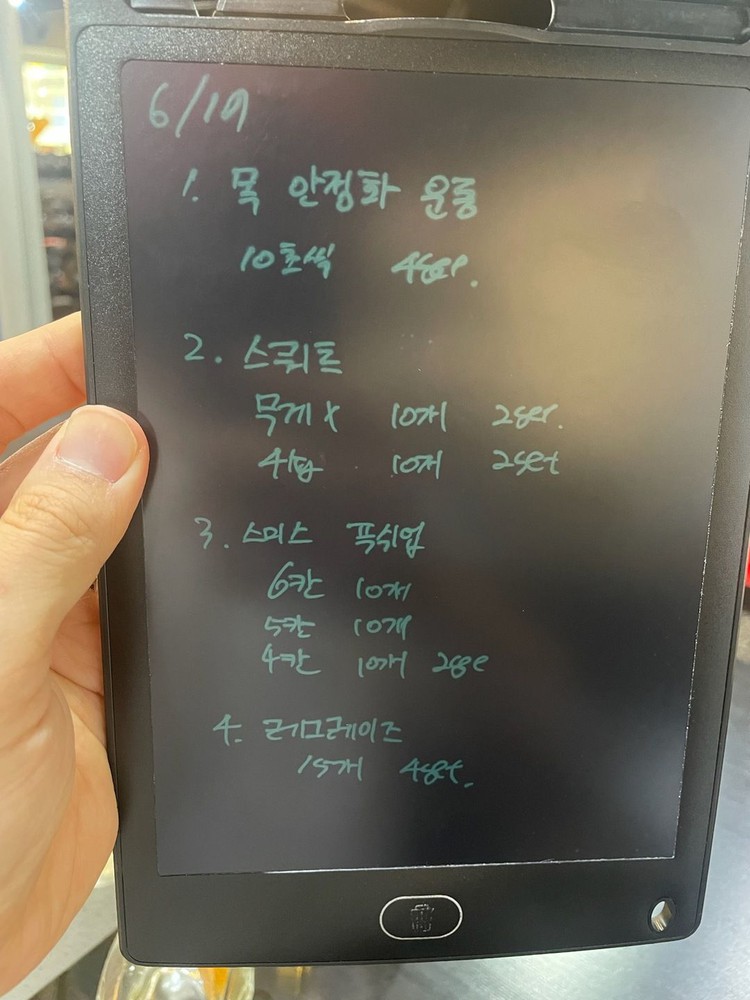 6/19
1. 목 안정화 운동
10초씩 4set.
2. 스쿼트
무게 X 10개 2set.
10개 2set
3. 스미스 푹쉬업
6칸 10개
5칸 10개
4칸 10개 2set
4. 레그레이즈
15개 4set.